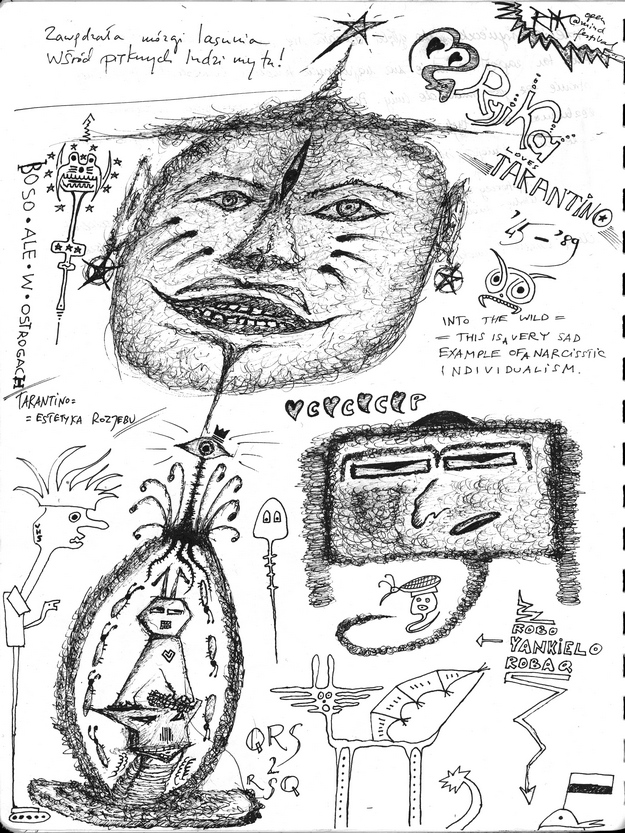 Zawędrała mózgi lasunia
Wśród pięknych ludzi mytu!
open
mind
festival
RyjKa
LOVES
TARANTINO
'45 - '89
BOSO • ALE • W • OSTROGACH
INTO THE WILD =
= THIS IS A VERY SAD
EXAMPLE OF A NARCISSTIC
INDIVIDUALISM.
TARANTINO =
= ESTETYKA ROZJEBU
C C C C P
ROBO
YANKIELO
ROBAQ
QRS
2
RSQ